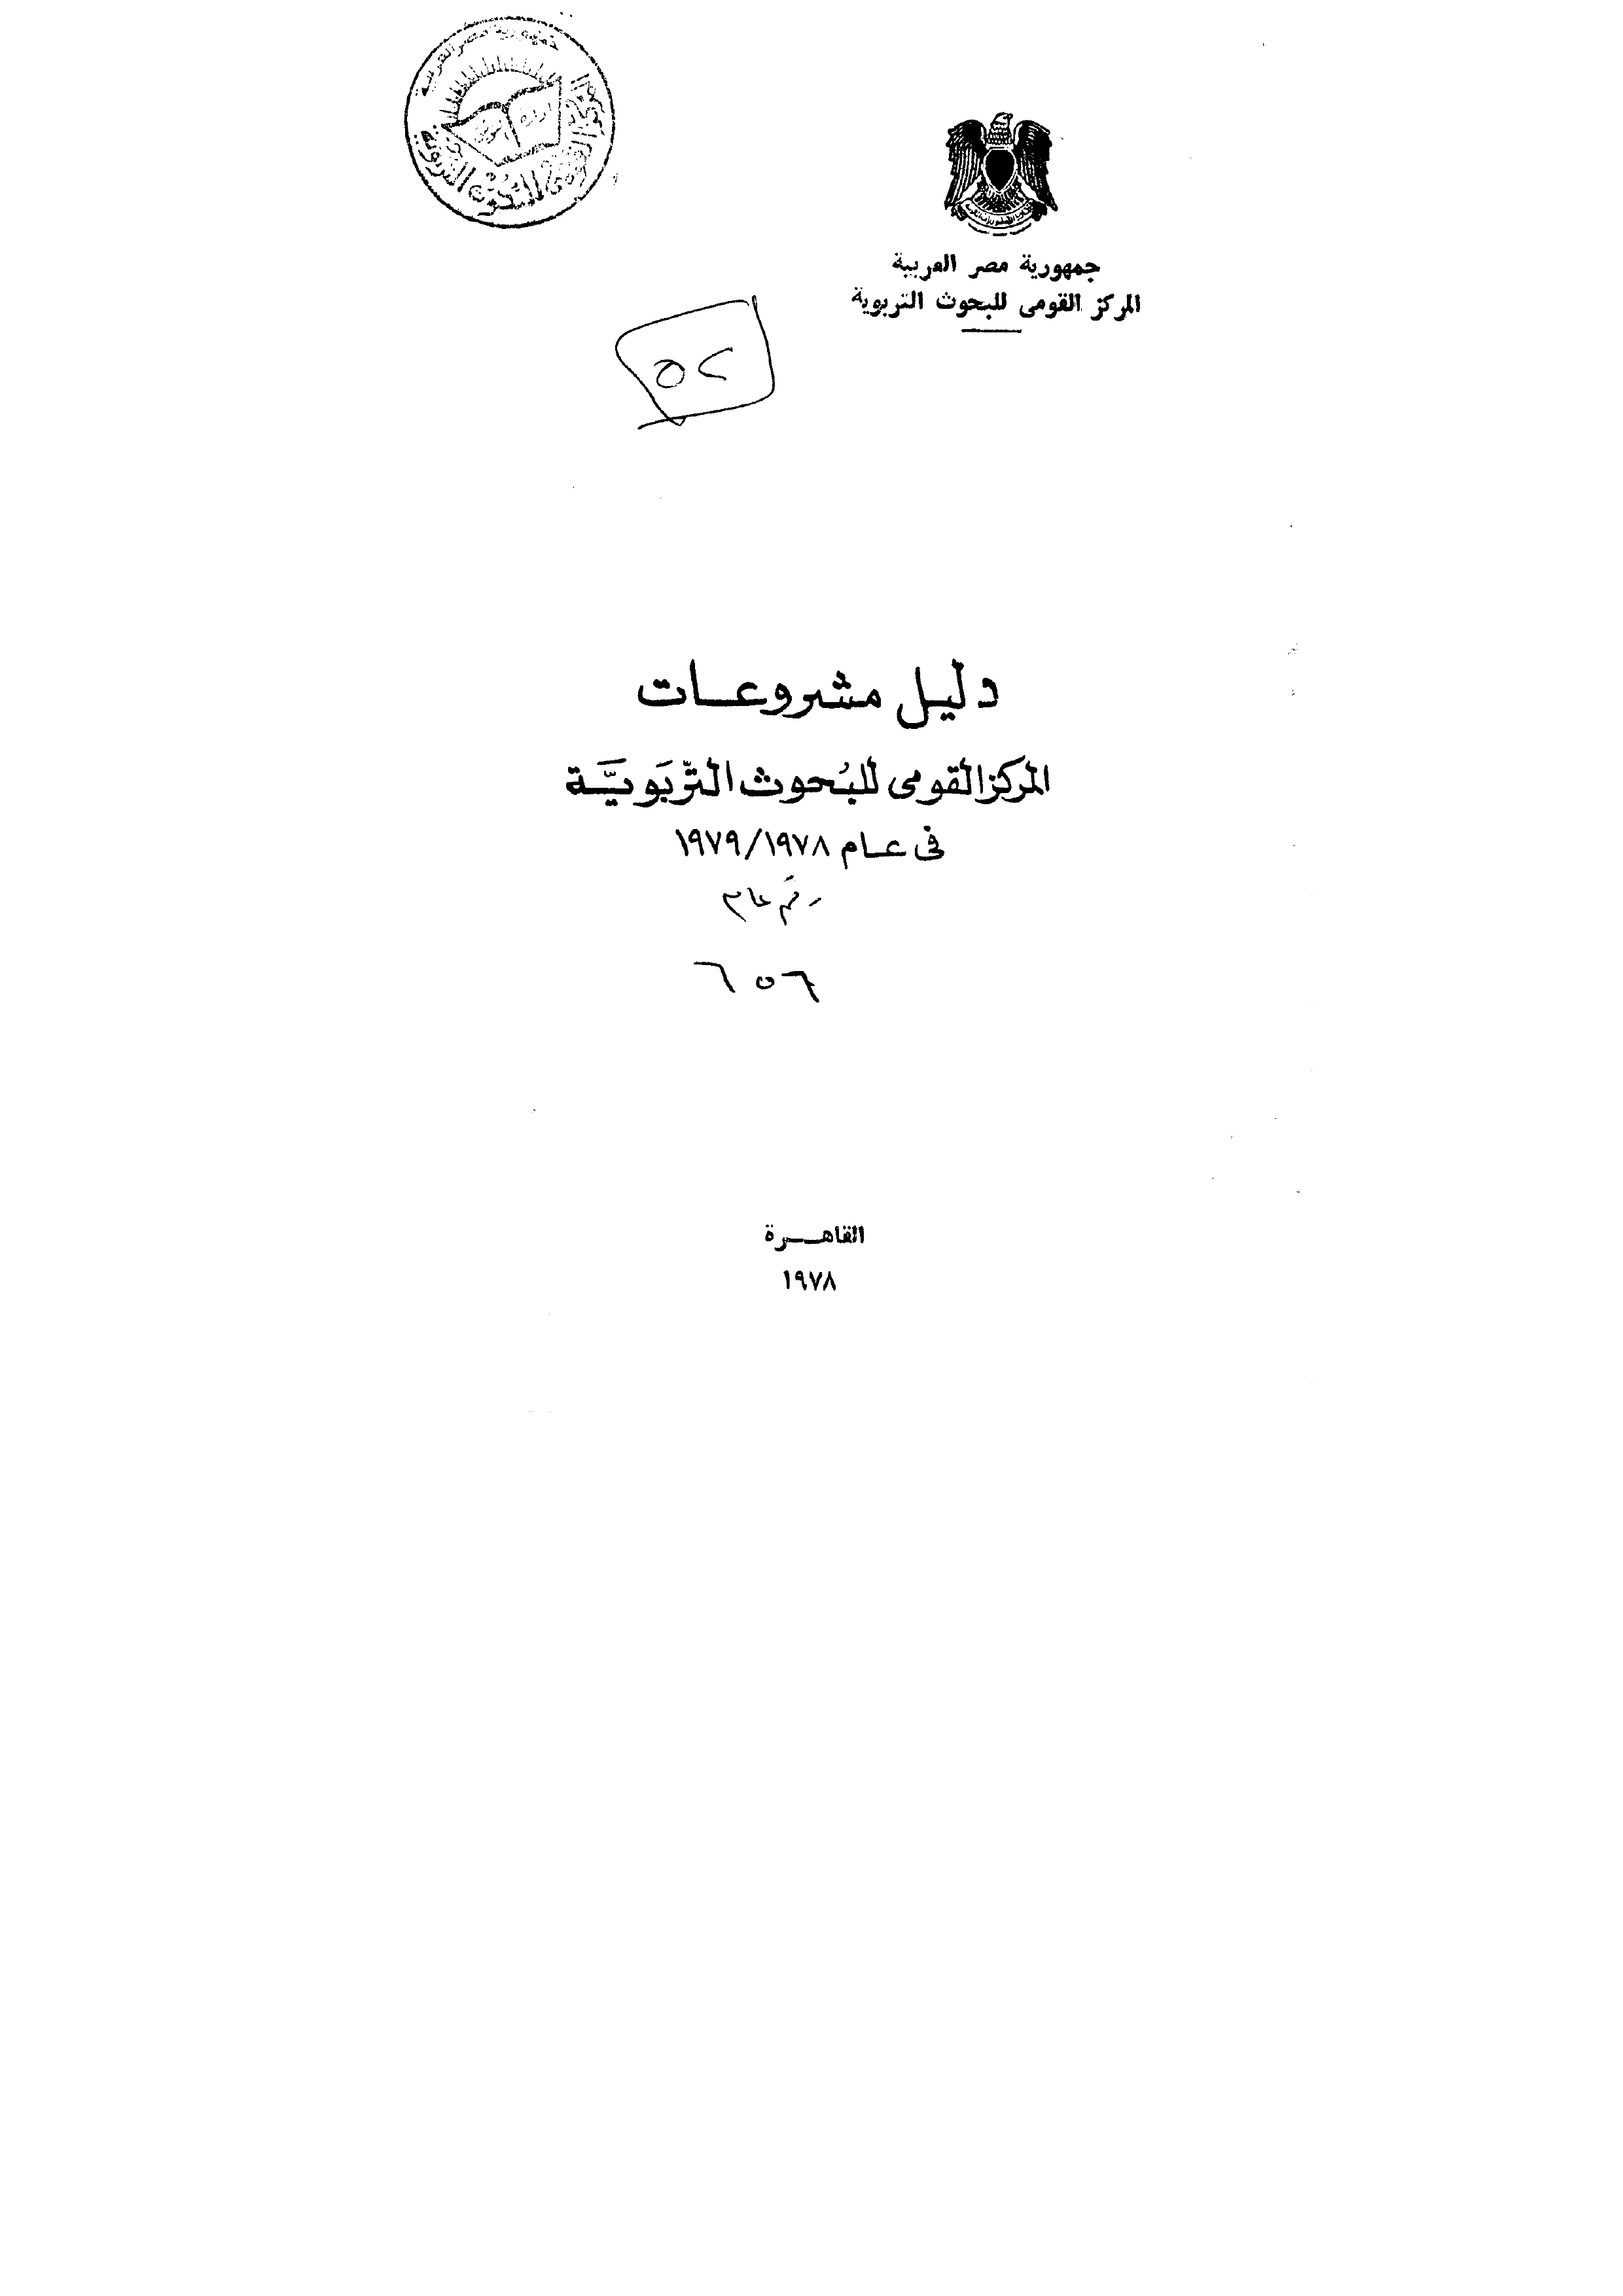 جمهورية مصر العربية
جمهورية مصر العربية
المركز القومى للبحوث التربوية
٥٢
دليل مشروعات
المركز القومى للبُحوث التّربَويَّة
فى عام ١٩٧٩/١٩٧٨
رقم عام
٦٥٦
القاهرة
١٩٧٨